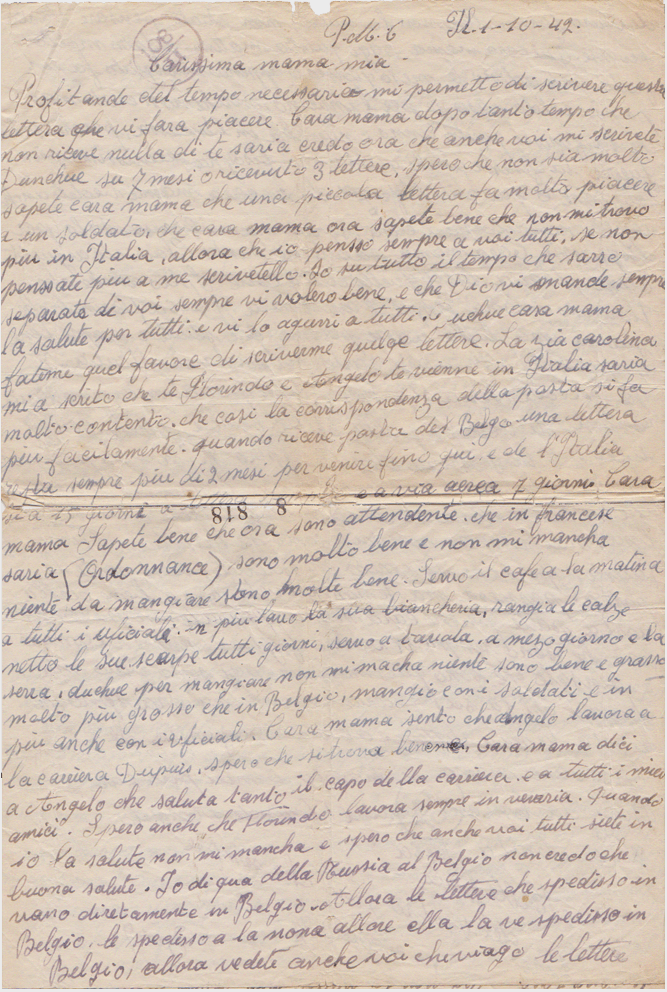 P.M. 6 Il 1-10-42.
Carissima mama mia -
Profitando del tempo necessario mi permetto di scrivere questa
lettera que vi fara piacere. Cara mama dopo tanto tempo che
non riceve nulla di te saria credo ora che anche voi mi scrivete
Dunchue su 7 mesi o ricevuto 3 lettere, spero che non sia molto
sapete cara mama che una piccola lettera fa molto piacere
a un soldato, che cara mama ora sapete bene che non mi trovo
piu in Italia, allora che io pensso sempre a voi tutti, se non
penssate piu a me scrivetello. Io su tutto il tempo che sarro
separato di voi sempre vi volero bene, e che Dio vi mande sempre
la salute per tutti e vi lo agurri a tutti. cara mama
fatemi quel favore di scriverme quelge lettere. La zia carolina
mi a scrito che te Florindo e Angelo te vienne in Italia saria
molto contento. che cosi la correspondenza della posta si fa
piu facilamente. quando riceve posta del Belgo una lettera
sempre piu di 2 mesi per venire fino qui. e de l'Italia
15 giorni a e a via aerea 7 giorni. Cara
818 8
mama Sapete bene che ora sono attendente. che in francese
saria (Ordonnance) sono molto bene e non mi mancha
niente da mangiare stono molte bene. Servo il cafe a la matina
a tutti i uficiale. in piu lavo la sua biancheria, rangia le calze
netto le sue scarpe tutti giorni, servo a tavola. a mezo giorno e la
serra, duchue per mangiare non mi macha niente sono bene e grasso
molto piu grosso che in Belgio, mangio con i soldati e in
piu anche con i uficiali. Cara mama sento che Angelo lavora a
la carriera Dupuis, spero che si trova bene. Cara mama dici
a Angelo che saluta tanto il capo della carriera e a tutti i miei
amici. Spero anche che Florindo lavora sempre in veraria. Quando
io la salute non mi mancha e spero che anche voi tutti siete in
buona salute. Io di qua della Russia al Belgio non credo che
vano diretamente in Belgio. Allora le lettere che spedisso in
Belgio, le spedesso a la nona allore ella la ve spedisso in
Belgio, allora vedete anche voi che viago le lettere